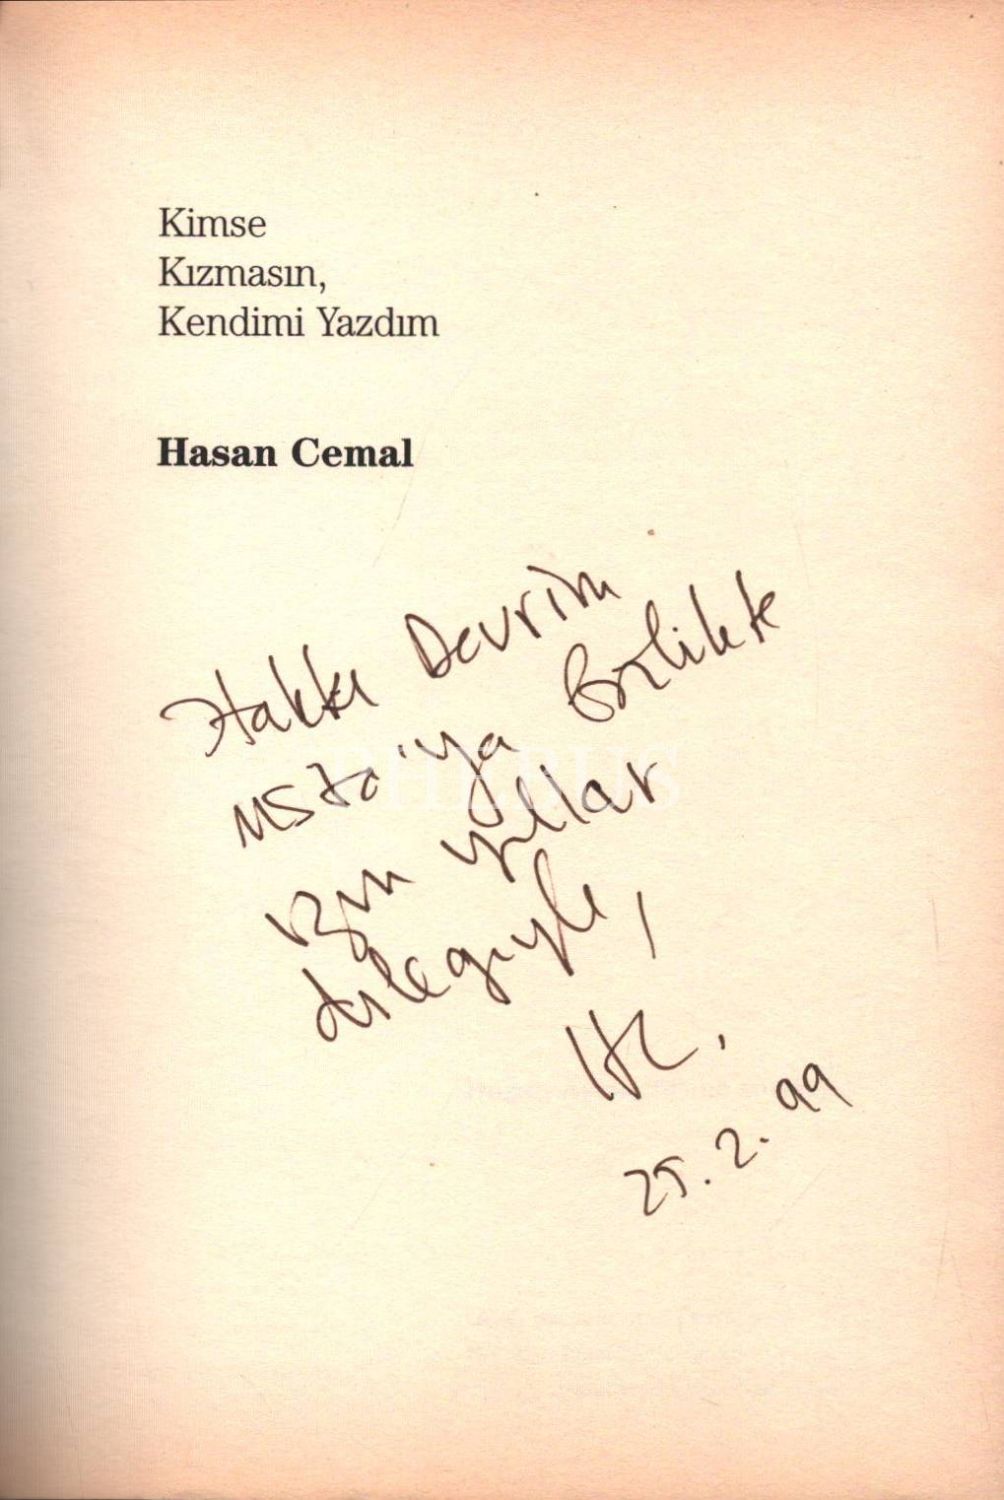 Kimse
Kızmasın,
Kendimi Yazdım
Hasan Cemal
Hakkı Devrim
usta'ya birlikte
uzun yıllar
dileğiyle,
HC.
25.2.99